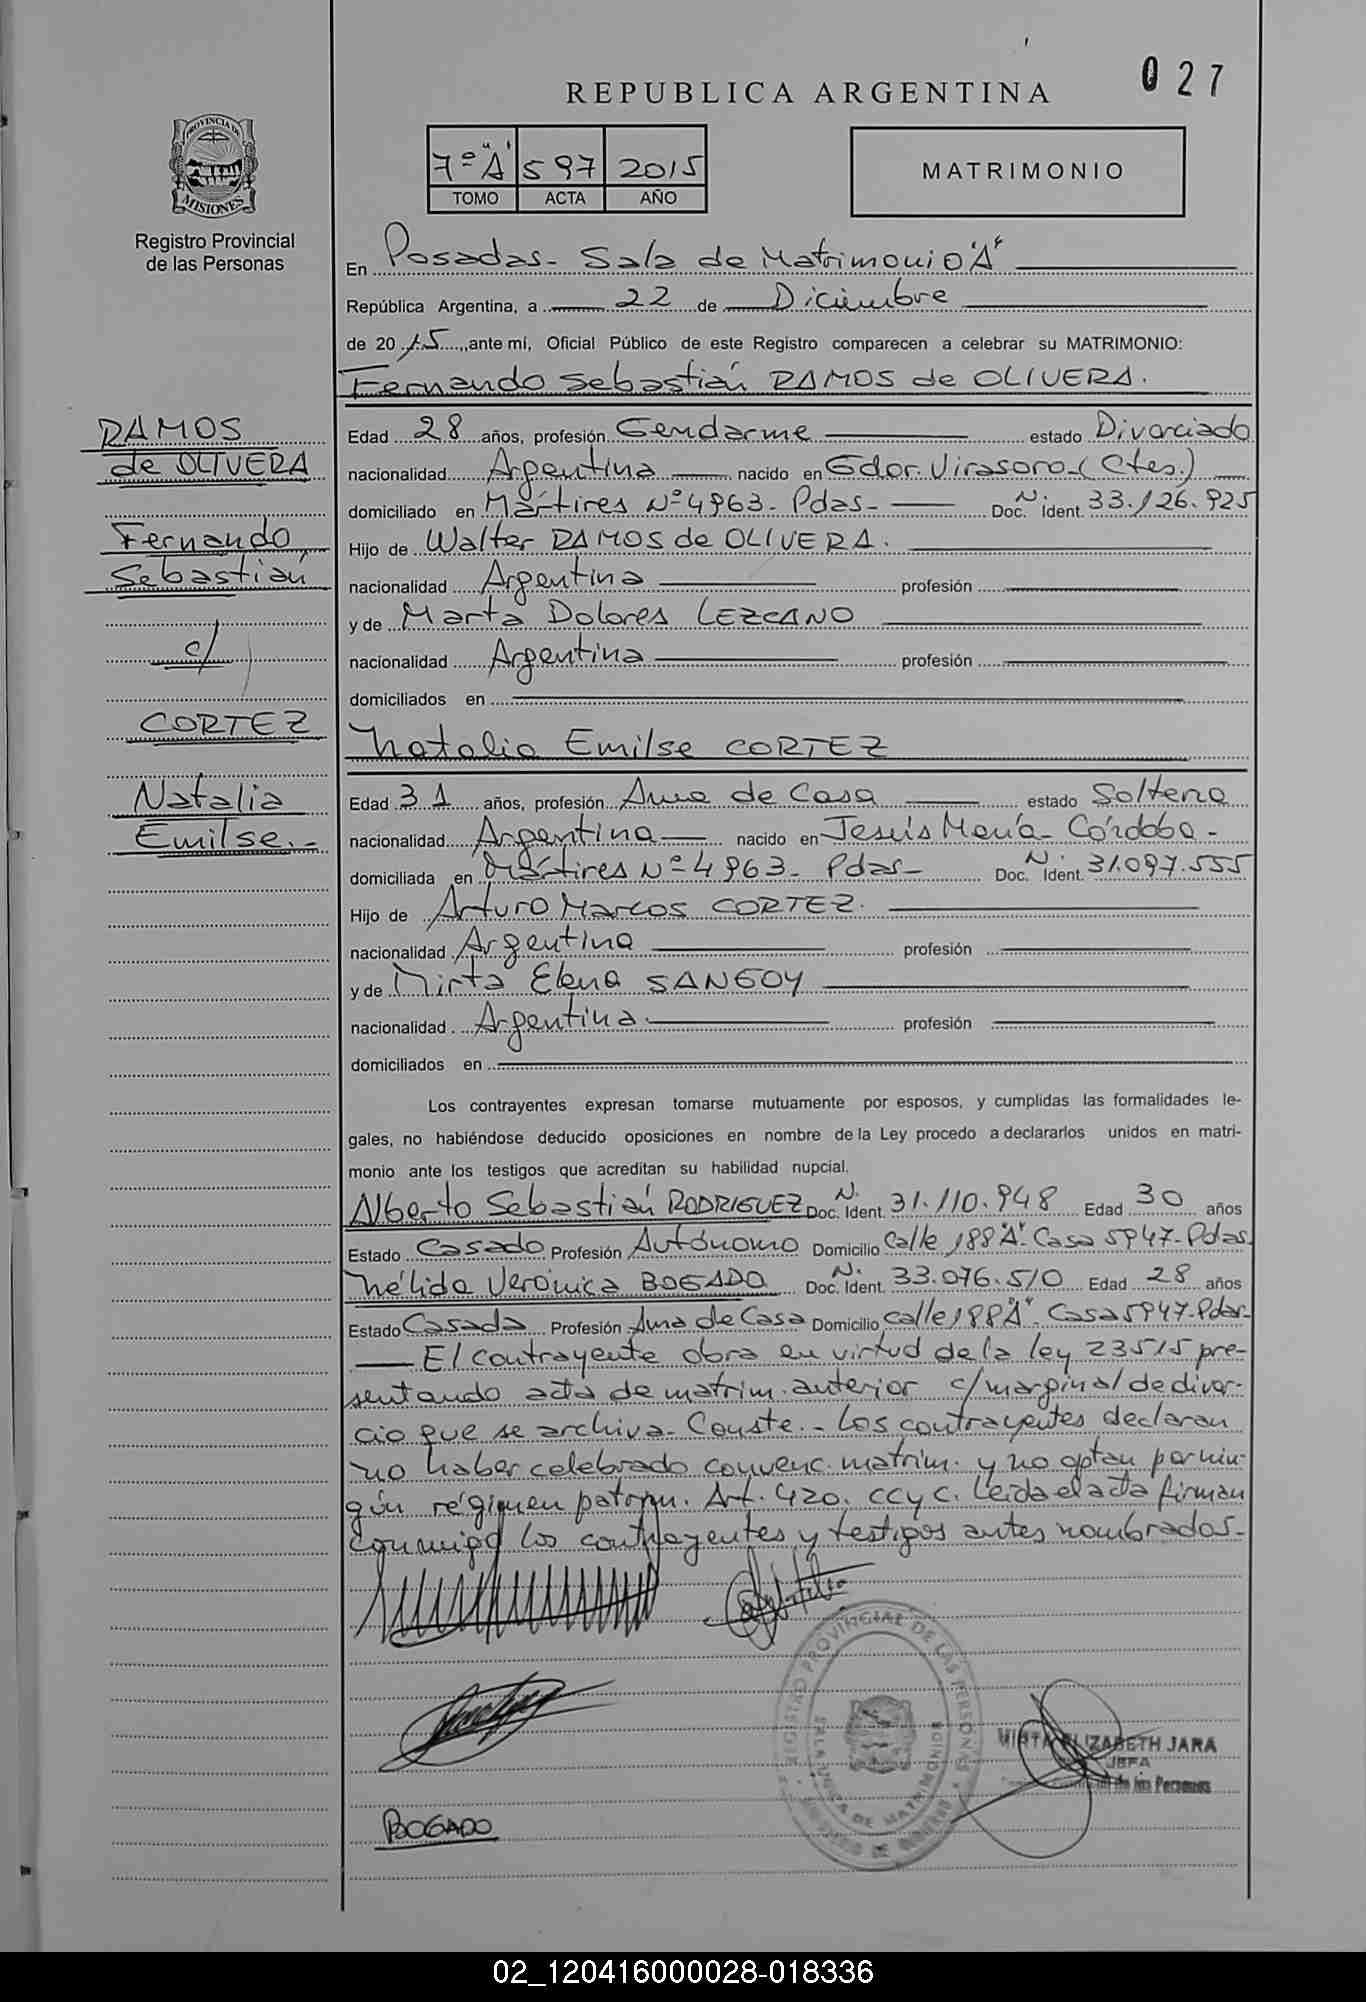 027
REPUBLICA ARGENTINA
PROVINCIA DE
MISIONES
Registro Provincial
de las Personas
7º "A" 597 2015
TOMO ACTA AÑO
MATRIMONIO
En Posadas - Sala de Matrimonio "A"
República Argentina, a 22 de Diciembre
de 2015, ante mi, Oficial Público de este Registro comparecen a celebrar su MATRIMONIO:
Fernando Sebastián RAMOS de OLIVERA.
RAMOS
de OLIVERA
Fernando
Sebastián
c/
CORTEZ
Natalia
Emilse.-
Edad 28 años, profesión Gendarme estado Divorciado
nacionalidad Argentina nacido en Gdor. Virasoro-(Ctes.)
domiciliado en Mártires Nº 4963- Pdas- Doc. N. Ident. 33.126.925
Hijo de Walter RAMOS de OLIVERA.
nacionalidad Argentina profesión
y de Marta Dolores LEZCANO
nacionalidad Argentina profesión
domiciliados en
Natalia Emilse CORTEZ
Edad 31 años, profesión Ama de Casa estado Soltera
nacionalidad Argentina nacido en Jesús María- Córdoba-
domiciliada en Mártires Nº 4963- Pdas- Doc. N. Ident. 31.097.555
Hijo de Arturo Marcos CORTEZ.
nacionalidad Argentina profesión
y de Mirta Elena SANGOY
nacionalidad Argentina profesión
domiciliados en
Los contrayentes expresan tomarse mutuamente por esposos, y cumplidas las formalidades le-
gales, no habiéndose deducido oposiciones en nombre de la Ley procedo a declararlos unidos en matri-
monio ante los testigos que acreditan su habilidad nupcial.
Alberto Sebastián RODRIGUEZ Doc. N. Ident. 31.110.948 Edad 30 años
Estado Casado Profesión Autónomo Domicilio Calle 188 "A"- Casa 5947- Pdas.
Nélida Verónica BOGADO Doc. N. Ident. 33.076.510 Edad 28 años
Estado Casada Profesión Ama de Casa Domicilio calle 188 "A"- Casa 5947- Pdas-
El contrayente obra en virtud de la ley 23515 pre-
sentando acta de matrim. anterior c/marginal de divor-
cio que se archiva- Conste.- Los contrayentes declaran
no haber celebrado convenc. matrim. y no optan por nin-
gún régimen patrim. Art. 420. CCyC. Leída el acta firman
conmigo los contrayentes y testigos antes nombrados-
REGISTRO PROVINCIAL DE LAS PERSONAS
DE MATRIMONIOS
MIRTA ELIZABETH JARA
JEFA
de las Personas
BOGADO
02_120416000028-018336